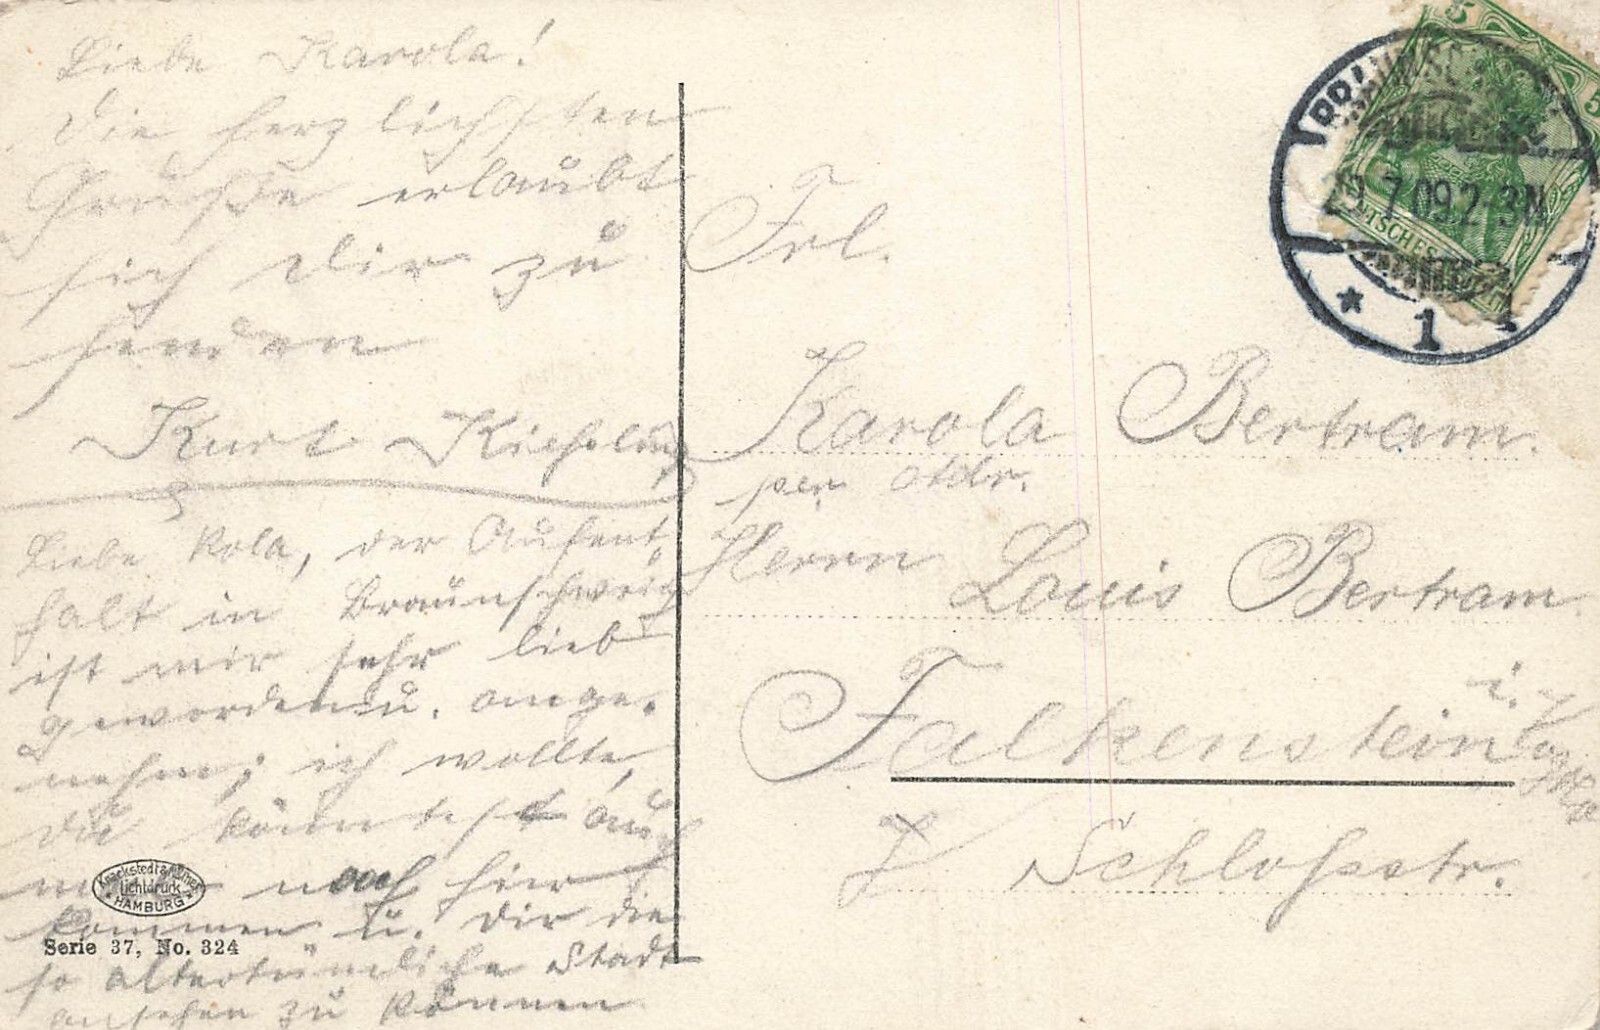 Liebe Karola!
Die herzlichsten
Grüße erlaubt
sich Dir zu
senden
Kurt
Liebe Kola, der Aufent-
halt in Braunschweig
ist mir sehr lieb
geworden u. ange-
nehm; ich wollte,
du könntest auch
noch hier
kommen u. Dir die
so altertümliche Stadt
ansehen zu können
Knackstedt &
Lichtdruck
HAMBURG
Serie 37, No. 324
5
5
29.7.09.2-3N
* 1
Frl.
Karola Bertram.
per Adr.
Herrn Louis Bertram.
Falkenstein i.
Schloßstr.